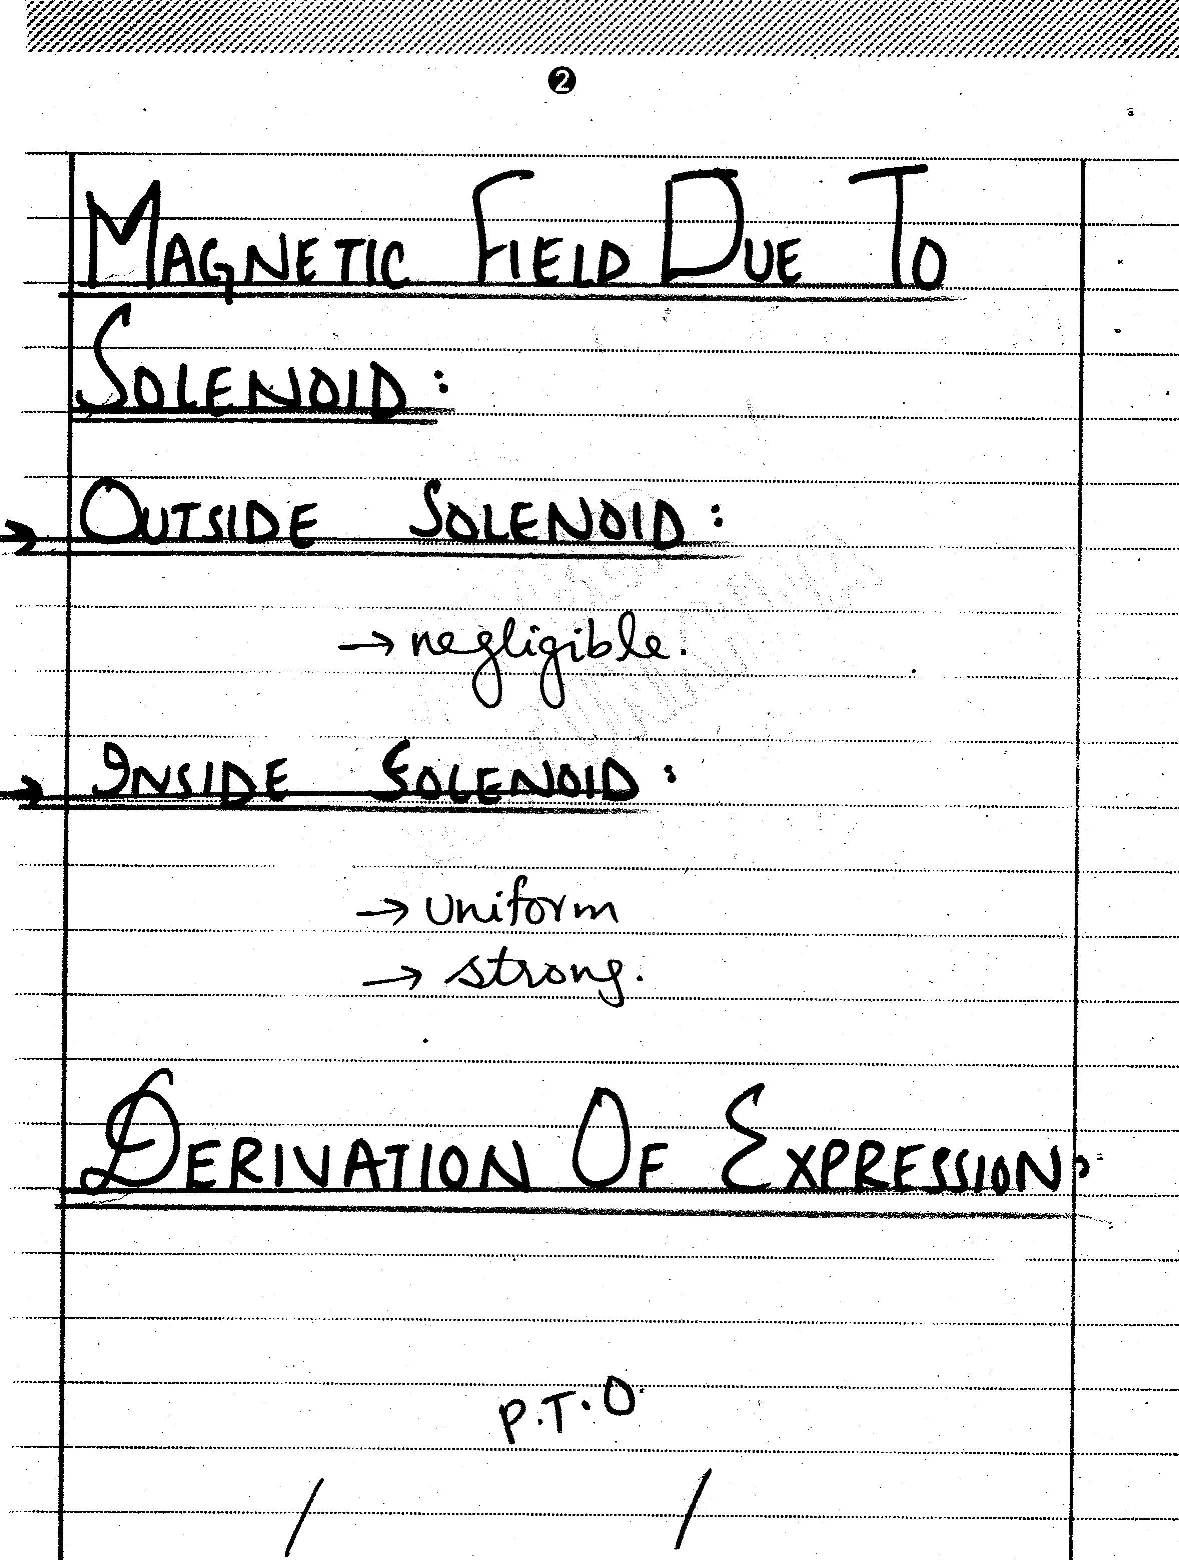 2
MAGNETIC FIELD DUE TO
SOLENOID:
→ OUTSIDE SOLENOID:
→ negligible.
→ INSIDE SOLENOID:
→ uniform
→ strong.
DERIVATION OF EXPRESSION:
P.T.O.